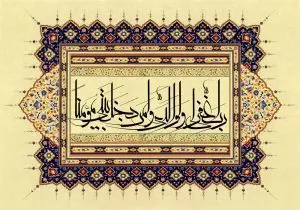 رب اغفر لی ولوالدی ولمن دخل بیتی مومنا